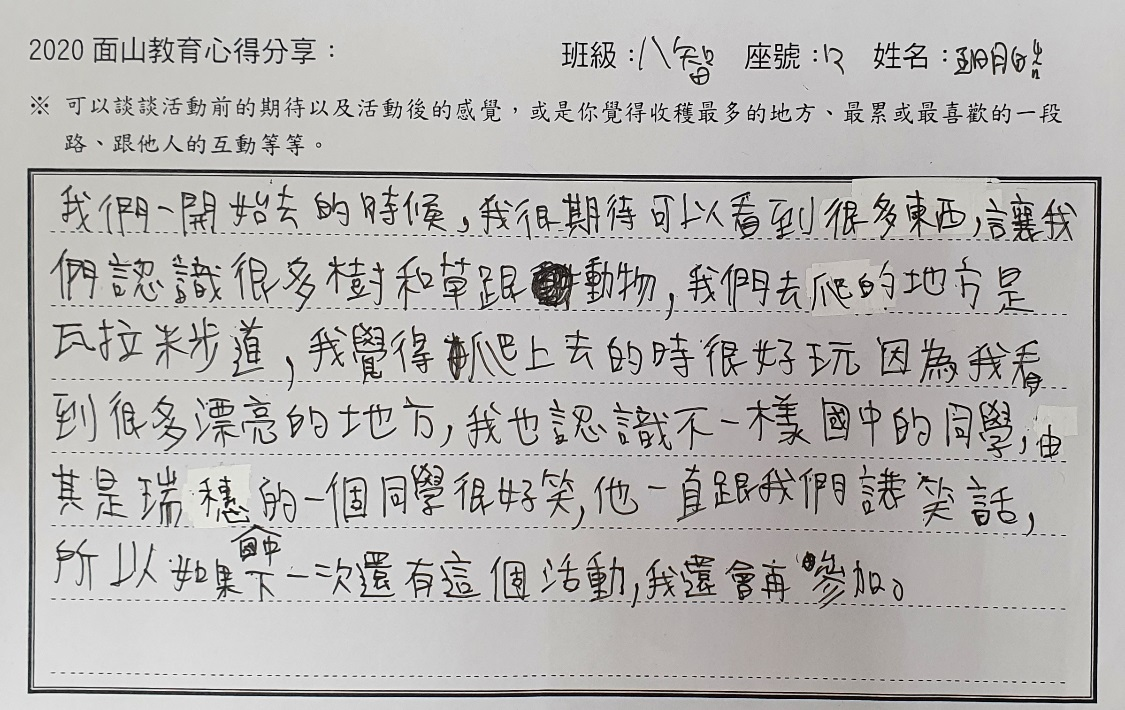 2020 面山教育心得分享： 班級：八智 座號：12 姓名：
※ 可以談談活動前的期待以及活動後的感覺，或是你覺得收穫最多的地方、最累或最喜歡的一段
路、跟他人的互動等等。
我們一開始去的時候，我很期待可以看到很多東西，讓我
們認識很多樹和草跟動物，我們去爬的地方是
瓦拉米步道，我覺得爬上去的時很好玩因為我看
到很多漂亮的地方，我也認識不一樣國中的同學，由
其是瑞穗的一個同學很好笑，他一直跟我們講笑話，
國中
所以如果下一次還有這個活動，我還會再參加。